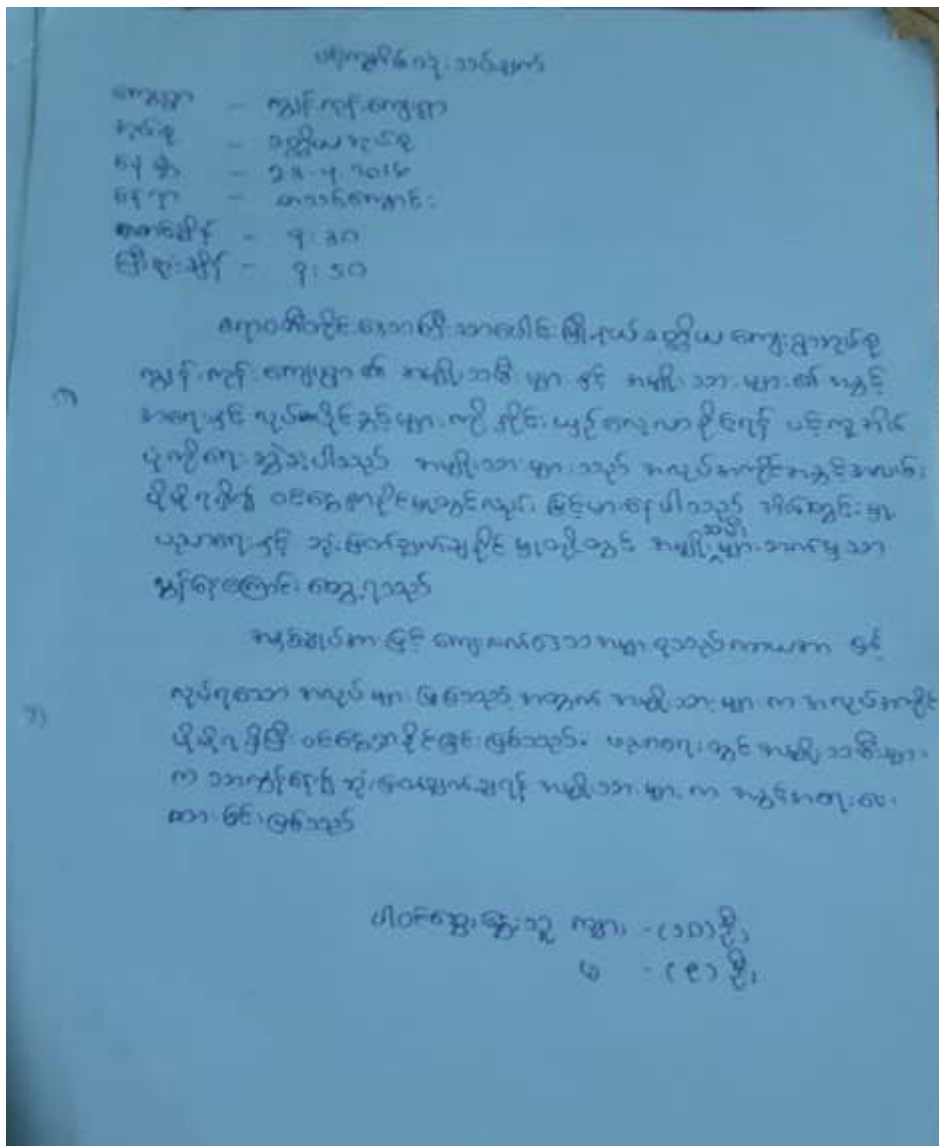 ပင့်ကူအိမ်သုံးသပ်ချက်
ကျေးရွာ - ကျွန်းကုန်းကျေးရွာ
အုပ်စု - ခတ္တိယအုပ်စု
နေ့စွဲ - 28-4 2016
နေရာ - စာသင်ကျောင်း
စတင်ချိန် - 9:30
ပြီးဆုံးချိန် - 9:50
ဧရာဝတီတိုင်းဒေသကြီး သာပေါင်းမြို့နယ် ခတ္တိယ ကျေးရွာအုပ်စု
က) ကျွန်းကုန်းကျေးရွာ၏ အမျိုးသမီးများ နှင့် အမျိုးသားများ၏ အခွင့်
အရေးနှင့် လုပ်ပိုင်ခွင့်များကို နှိုင်းယှဉ်လေ့လာနိုင်ရန် ပင့်ကူအိမ်
ပုံကိုရေးဆွဲခဲ့ပါသည် အမျိုးသားများသည် အလုပ်အကိုင်အခွင့်အလမ်း
ပိုမိုရရှိ၍ ဝင်ငွေရှာနိုင်မှုတွင်လည်း မြင့်မားနေပါသည် အိမ်တွင်းမှု
ပညာရေးနှင့် ဆုံးဖြတ်ချက်ချနိုင်မှုတို့တွင် အမျိုးသမီးများဘက်မှ သာ
လွန်နေကြောင်း တွေ့ရသည်
အနှစ်ချုပ်အားဖြင့် ကျေးလက်ဒေသ များသည် ကာယအား နှင့်
ခ) လုပ်ရသော အလုပ်များ ဖြစ်သည့် အတွက် အမျိုးသားများ က အလုပ်အကိုင်
ပိုမိုရရှိပြီး ဝင်ငွေရှာနိုင်ခြင်း ဖြစ်သည်။ ပညာရေးတွင် အမျိုးသမီးများ
က သာလွန်နေ၍ ဆုံးဖြတ်ချက်ချရန် အမျိုးသားများ က အခွင့်အရေးပေး
ထားခြင်းဖြစ်သည်
ပါဝင်ဆွေးနွေးသူ ကျား - (၁၁) ဦး
မ - (၉) ဦး